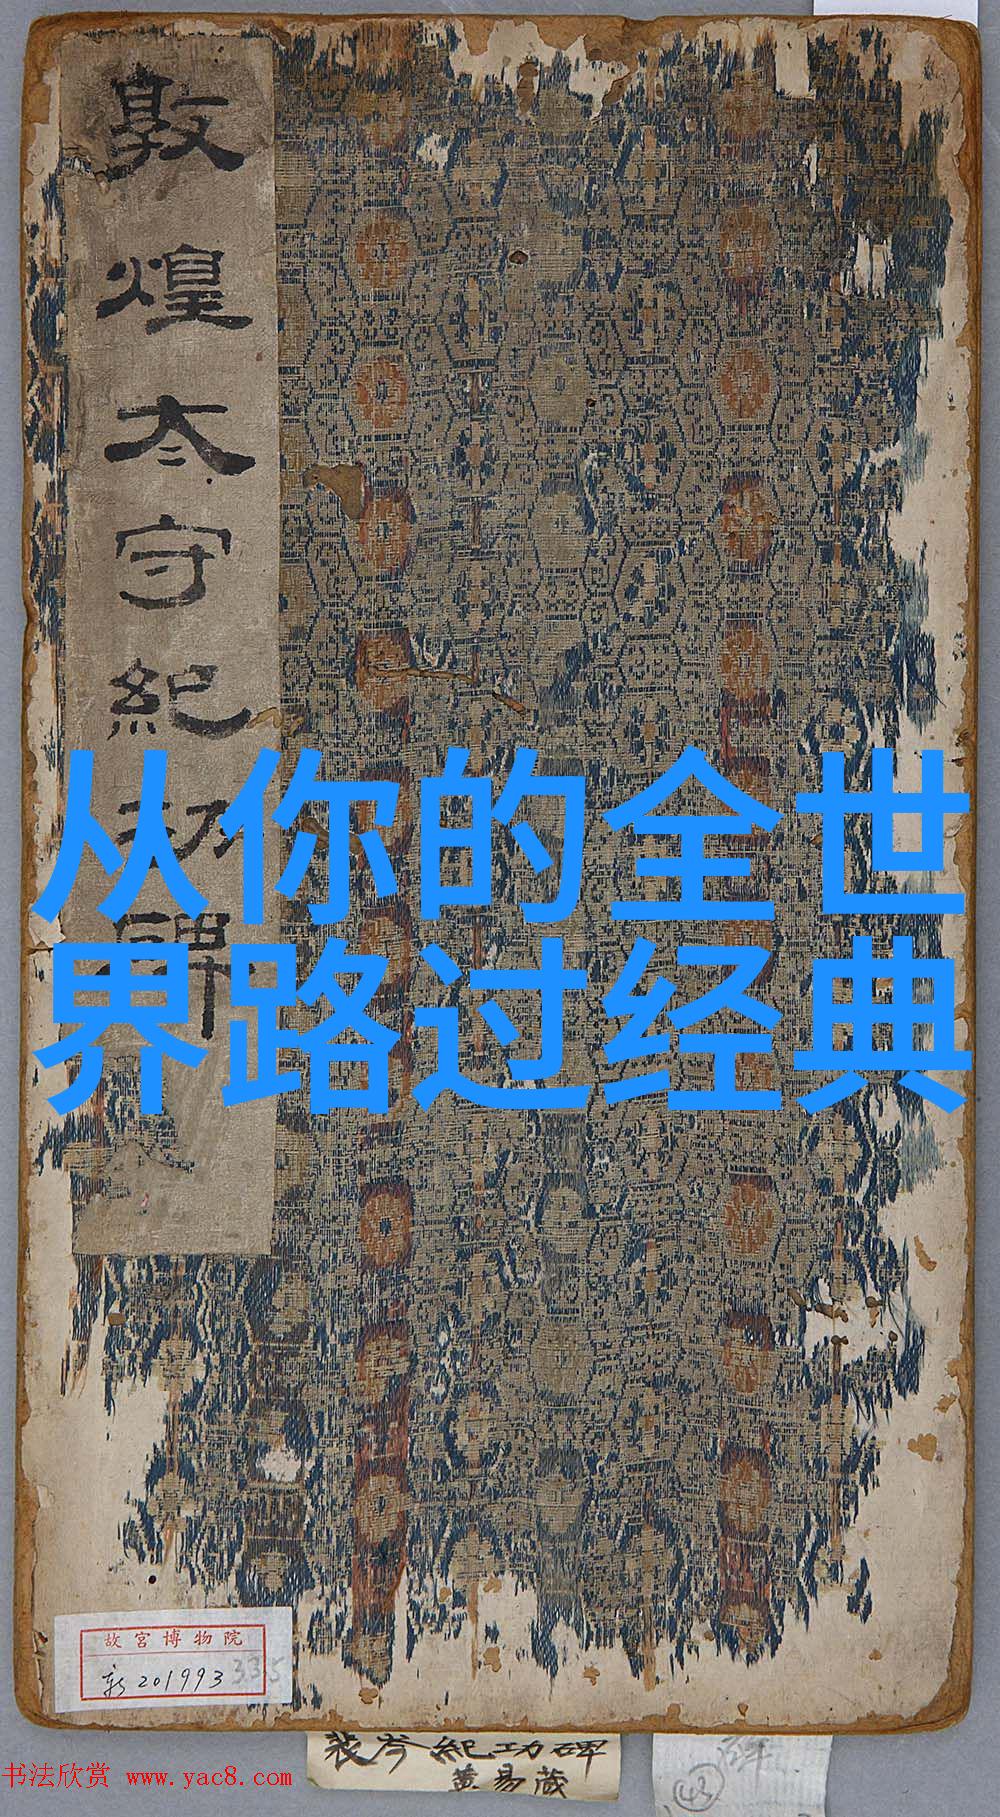 敦煌太守紀功碑
从你的全世
界路过经典
故宫博物院
新201993
335
裴岑紀功碑
黄易藏
43
书法欣赏 www.yac8.com